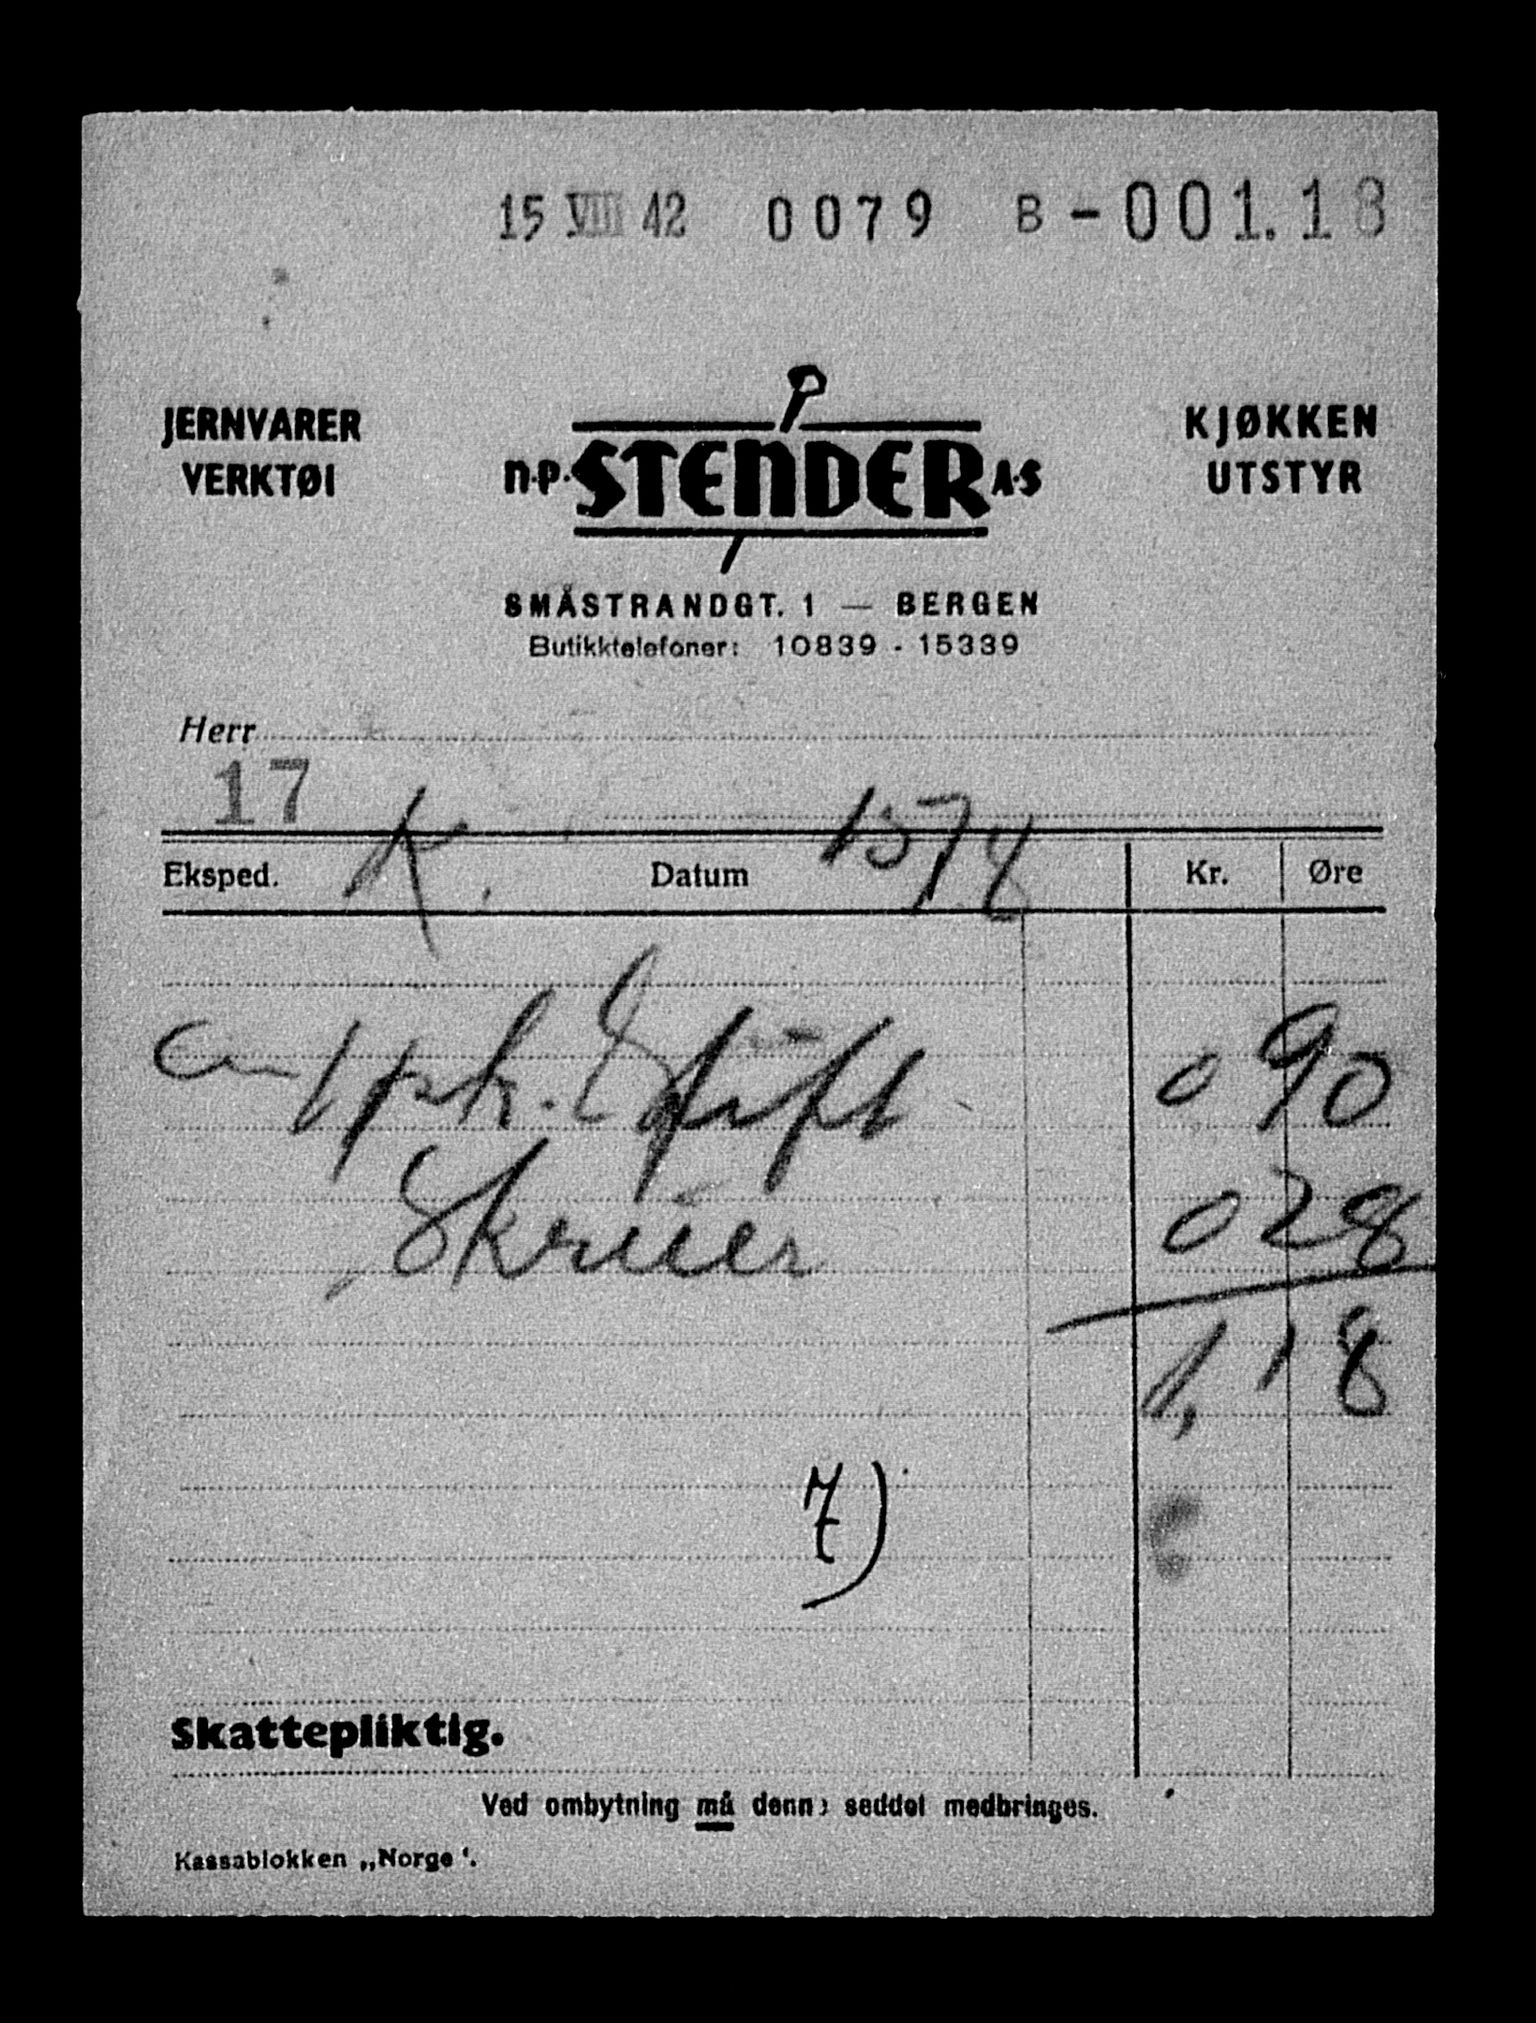 15 VIII 42 0079 B-001.18
JERNVARER
VERKTØI
N.P. STENDER A.S
KJØKKEN
UTSTYR
SMÅSTRANDGT. 1 — BERGEN
Butikktelefoner: 10839 - 15339
Herr
17
Eksped. K. Datum 15/8 Kr. Øre
1 pk. Stift 0 90
Skruer 0 28
1,18
7)
Skattepliktig.
Ved ombytning må denne seddel medbringes.
Kassablokken „Norge“.